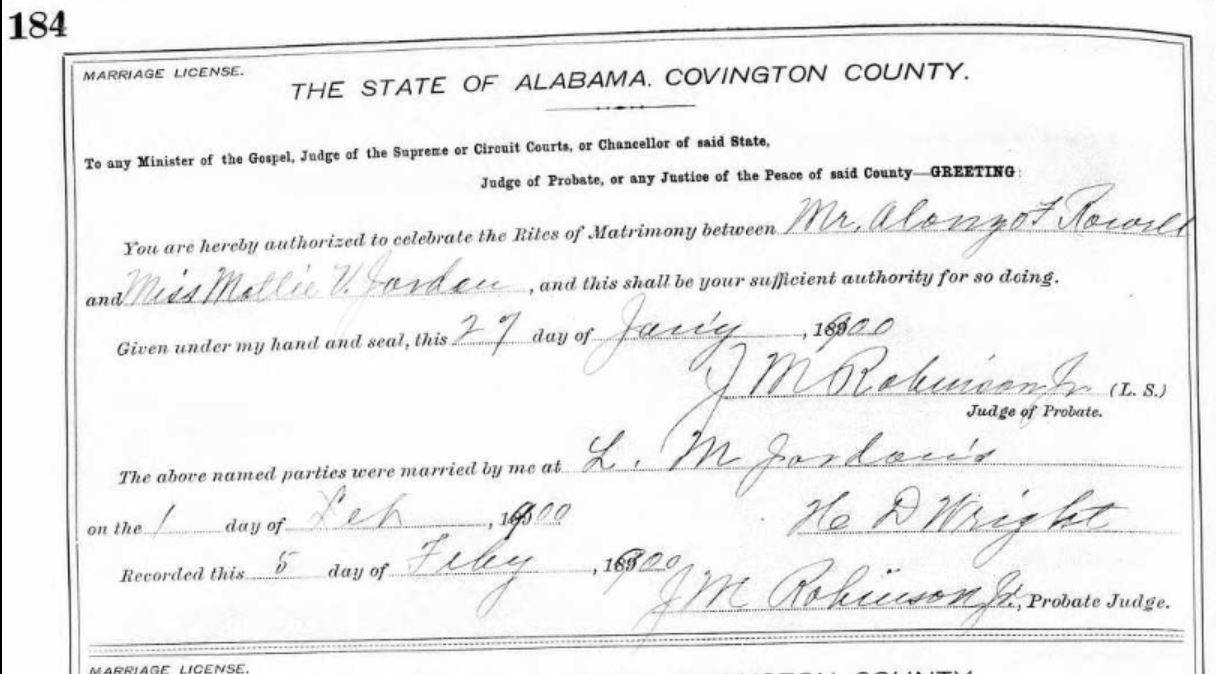 184
MARRIAGE LICENSE.
THE STATE OF ALABAMA. COVINGTON COUNTY.
To any Minister of the Gospel, Judge of the Supreme or Circuit Courts, or Chancellor of said State,
Judge of Probate, or any Justice of the Peace of said County—GREETING:
You are hereby authorized to celebrate the Rites of Matrimony between Mr. Alonzo F Rowell
and Miss Mollie V. Jordan, and this shall be your sufficient authority for so doing.
Given under my hand and seal, this 27 day of Jan'y, 1900
J M Robinson Jr. (L. S.)
Judge of Probate.
The above named parties were married by me at L. M Jordan's
on the 1 day of Feb, 1900
H D Wright
Recorded this 5 day of Feby, 1900
J M Robinson Jr., Probate Judge.
MARRIAGE LICENSE.
COUNTY